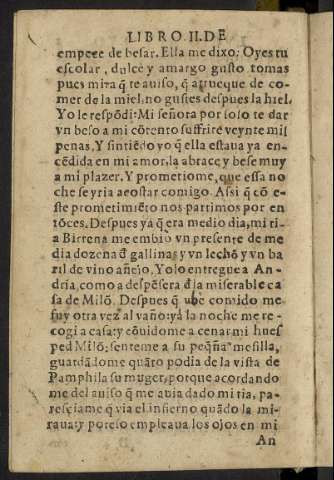 LIBRO. II. DE
empece de besar. Ella me dixo: Oyes tu
escolar, dulce y amargo gusto tomas
pues mira q̃ te auiso, q̃ a trueque de co-
mer de la miel, no gustes despues la hiel.
Yo le respõdi: Mi señora por solo te dar
vn beso a mi cõtento suffrire veynte mil
penas. Y sintiẽdo yo q̃ ella estaua ya en-
cẽdida en mi amor, la abrace y bese muy
a mi plazer. Y prometiome, que essa no
che se yria acostar comigo. Assi q̃ cõ e-
ste prometimiẽto nos partimos por en
tõces. Despues ya q̃ era medio dia, mi ti-
a Birrena me embio vn presente de me
dia dozena d̃ gallinas y vn lechõ y vn ba
ril de vino añejo. Yo lo entregue a An-
dria, como a despẽsera d̃ la miserable ca
sa de Milõ. Despues q̃ vbe comido me
fuy otra vez al vaño: ya la noche me re-
cogi a casa: y cõuidome a cenar mi hues
ped Milõ: senteme a su peq̃ña mesilla,
guardãdome quãto podia de la vista de
Pamphila su muger, porque acordando
me del auiso q̃ me auia dado mi tia, pa-
resciame q̃ via el infierno quãdo la mi-
raua: y por esso empleaua los ojos en mi
An